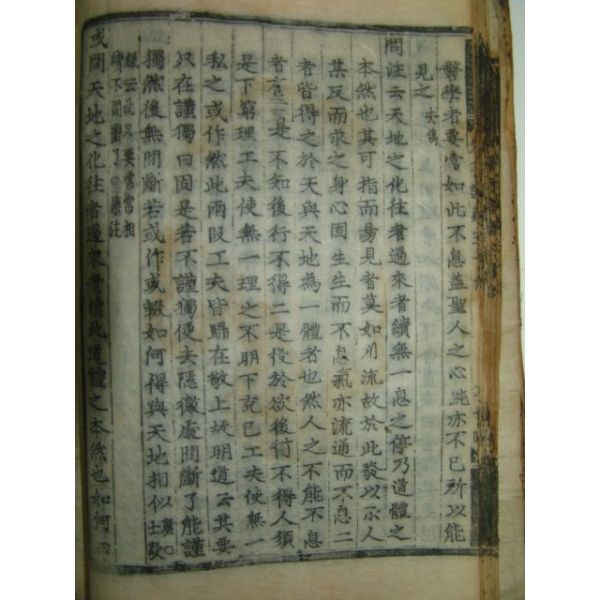 警學者要當如此不息蓋聖人之心純亦不已所以能
見之 去偽
問注云天地之化往者過來者續無一息之停乃道體之
本然也其可指而易見者莫如川流故於此發以示人
其反而求之身心固生生而不息氣亦流通而不息二
者皆得之於天與天地為一體者也然人之不能不息
者有二一是不知後行不得二是役於欲後行不得人須
是下窮理工夫使無一理之不明下克己工夫使無一
私之或作然此兩段工夫皆歸在敬上故明道云其要
只在謹獨曰固是若不謹獨便去隱微處間斷了能謹
獨然後無間斷若或作或輟如何得與天地相似 廣○士毅
錄云此只要常常相
續不間斷了○集注
或問天地之化往者過來者續此道體之本然也如何曰